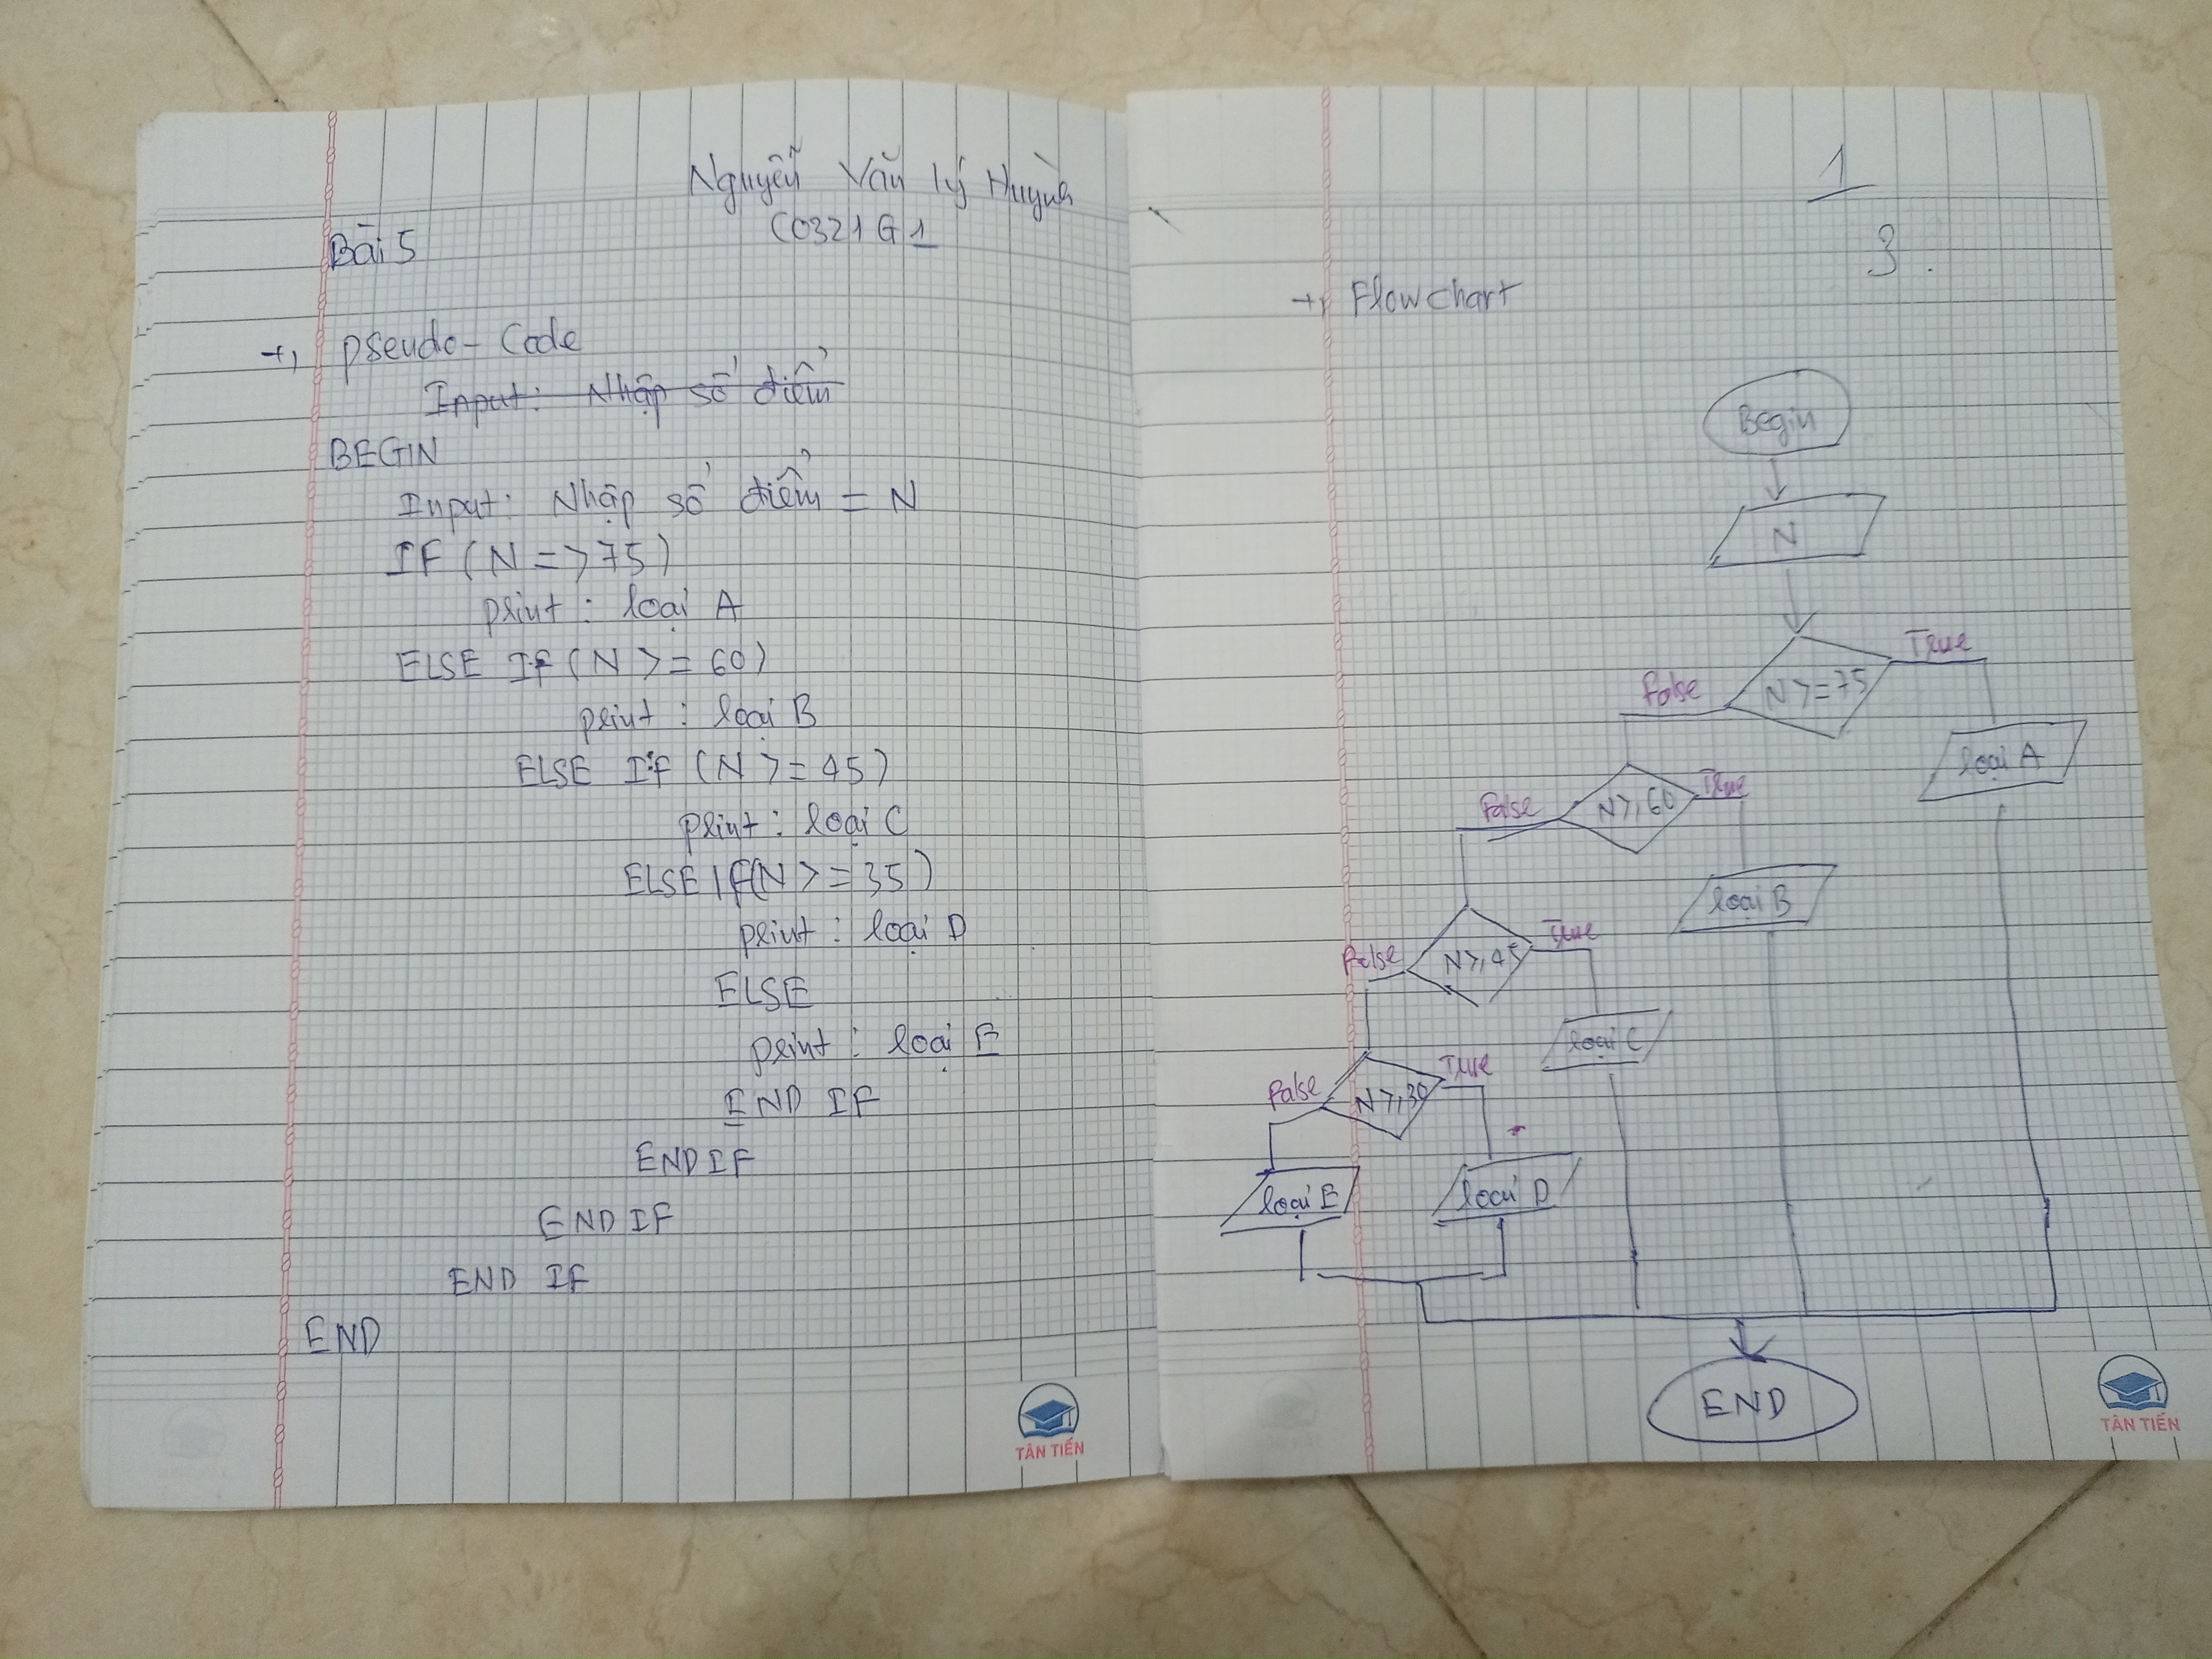 Nguyễn Văn Lý Huỳnh
C0321G1
Bài 5
+, pseudo-Code
Input: Nhập số điểm
BEGIN
Input: Nhập số điểm = N
IF (N => 75)
print: loại A
ELSE IF (N >= 60)
print: loại B
ELSE IF (N >= 45)
print: loại C
ELSE IF(N >= 35)
print: loại D
ELSE
print: loại E
END IF
END IF
END IF
END IF
END
TÂN TIẾN
1
3.
+, Flowchart
Begin
N
N >= 75
True
False
loại A
N >, 60
True
False
loại B
N >, 45
True
False
loại C
N >, 30
True
False
loại E
loại D
END
TÂN TIẾN